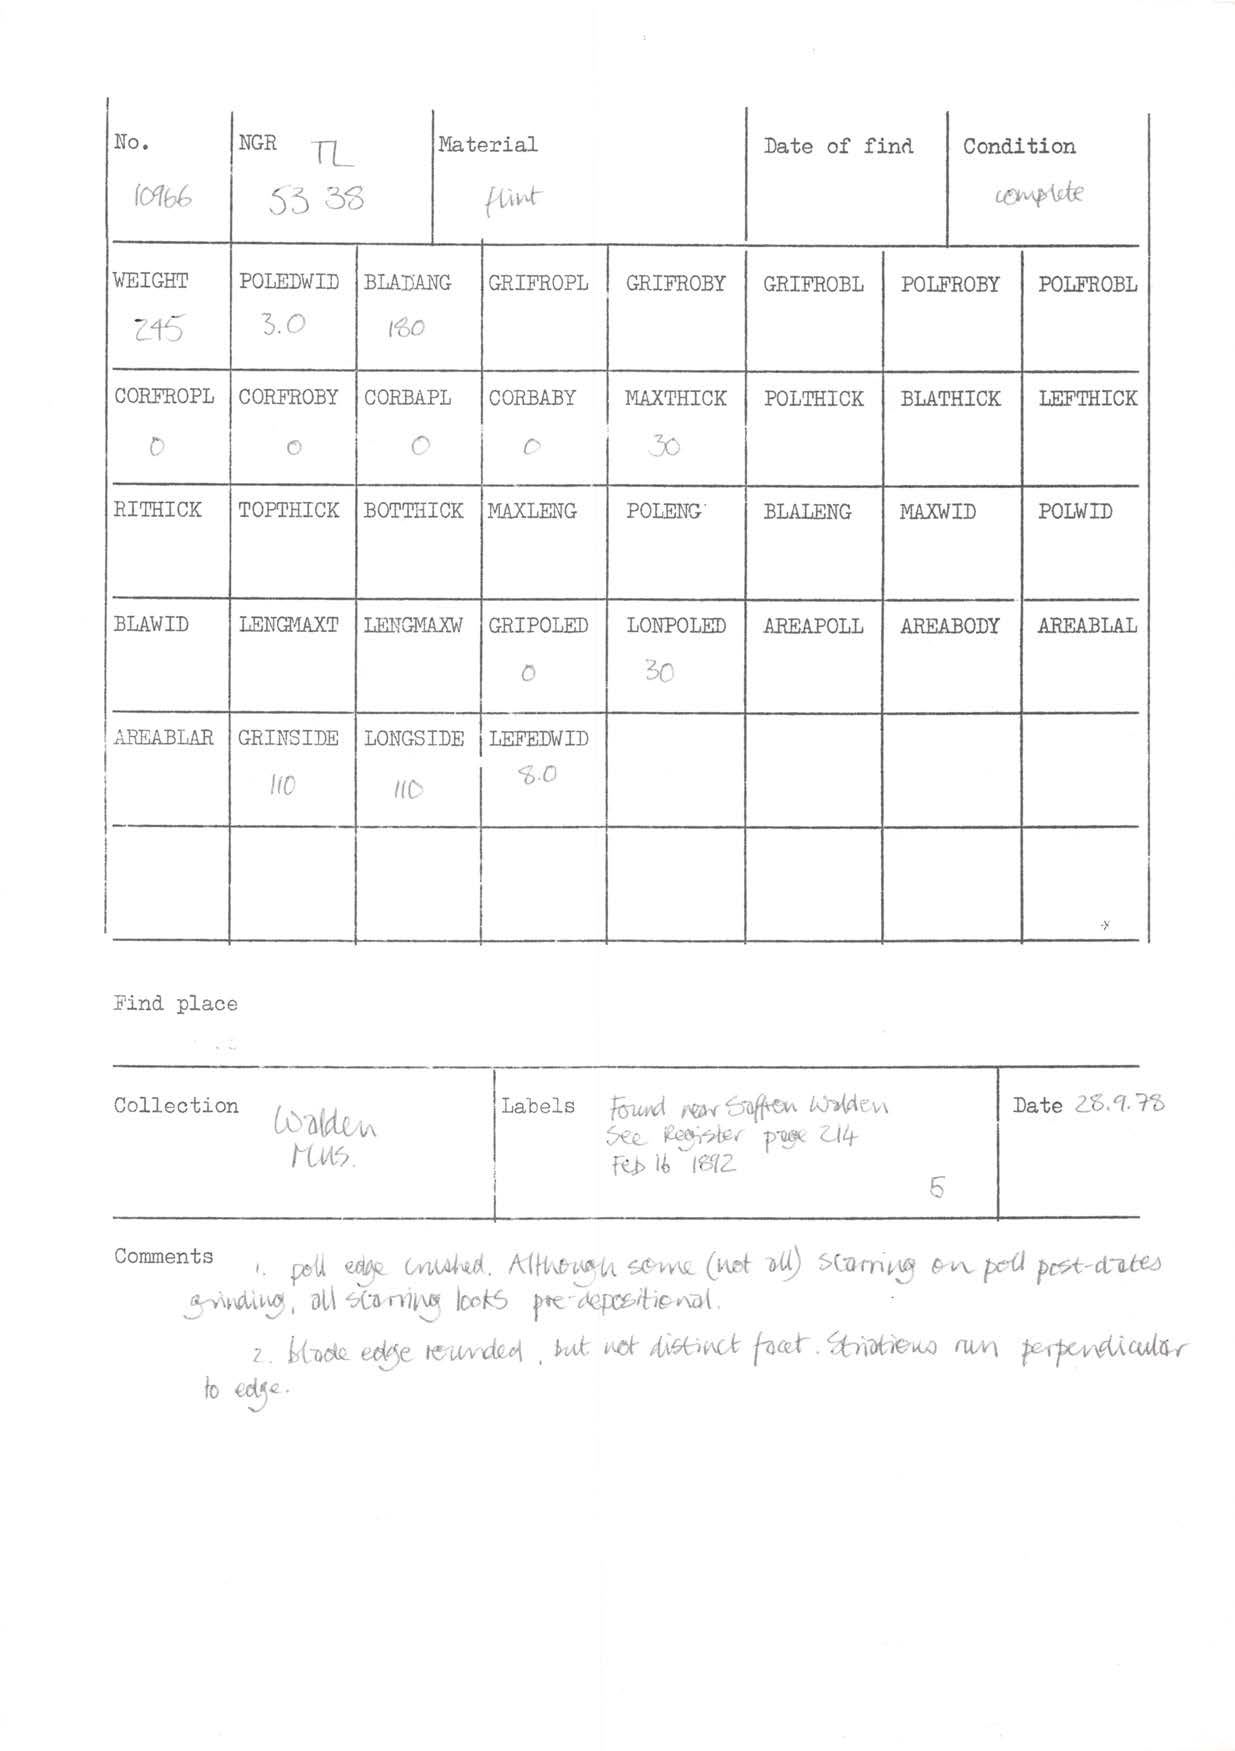 No. NGR TL Material Date of find Condition
10966 53 38 flint complete
WEIGHT POLEDWID BLADANG GRIFROPL GRIFROBY GRIFROBL POLFROBY POLFROBL
245 3.0 180
CORFROPL CORFROBY CORBAPL CORBABY MAXTHICK POLTHICK BLATHICK LEFTHICK
0 0 0 0 30
RITHICK TOPTHICK BOTTHICK MAXLENG POLENG BLALENG MAXWID POLWID
BLAWID LENGMAXT LENGMAXW GRIPOLED LONPOLED AREAPOLL AREABODY AREABLAL
0 30
AREABLAR GRINSIDE LONGSIDE LEFEDWID
110 110 8.0
Find place
Collection Walden Mus.
Labels Found near Saffron Walden
See Register page 214
Feb 16 1892
5
Date 28.9.78
Comments 1. poll edge crushed. Although some (not all) scarring on poll post-dates
grinding, all scarring looks pre-depositional.
2. blade edge rounded, but not distinct facet. Striations run perpendicular
to edge.